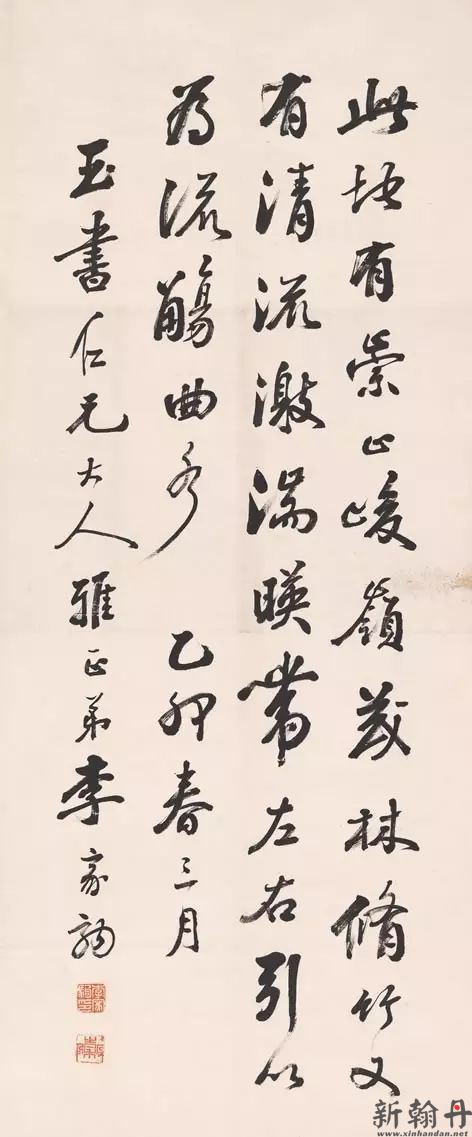 此地有崇山峻嶺茂林脩竹又
有清流激湍暎帶左右引以
為流觴曲水 乙卯春三月
玉書仁兄大人雅正弟李家駒
新翰丹
www.xinhandan.net